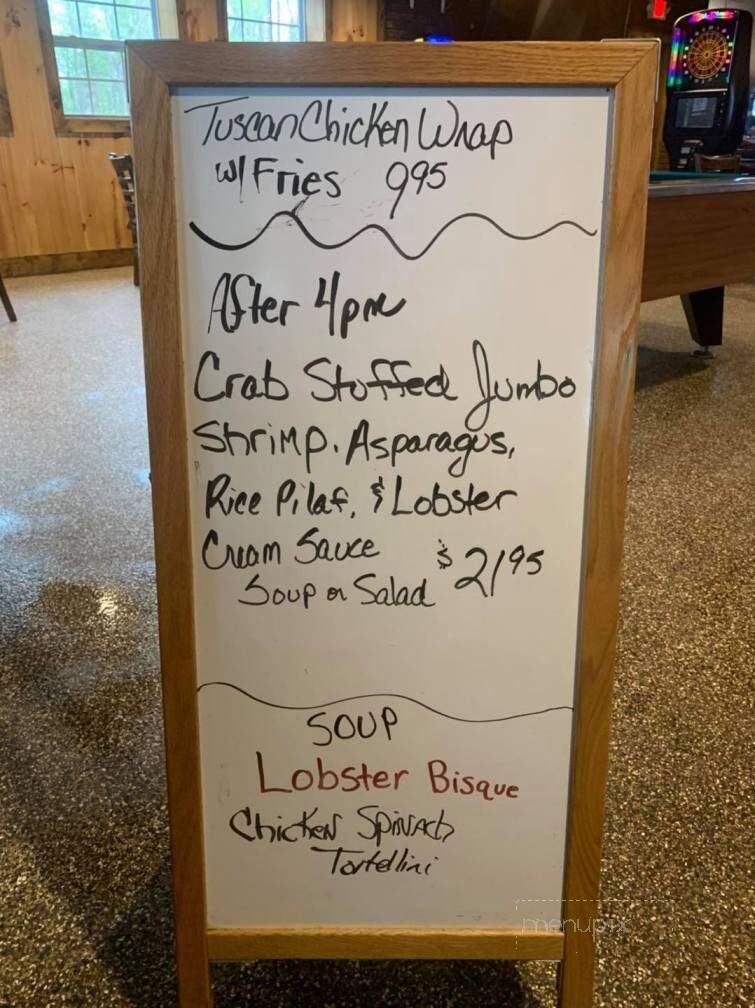 Tuscan Chicken Wrap
w/ Fries 995
After 4pm
Crab Stuffed Jumbo
Shrimp. Asparagus,
Rice Pilaf, & Lobster
Cream Sauce $2195
Soup or Salad
SOUP
Lobster Bisque
Chicken Spinach
Tortellini
menupix